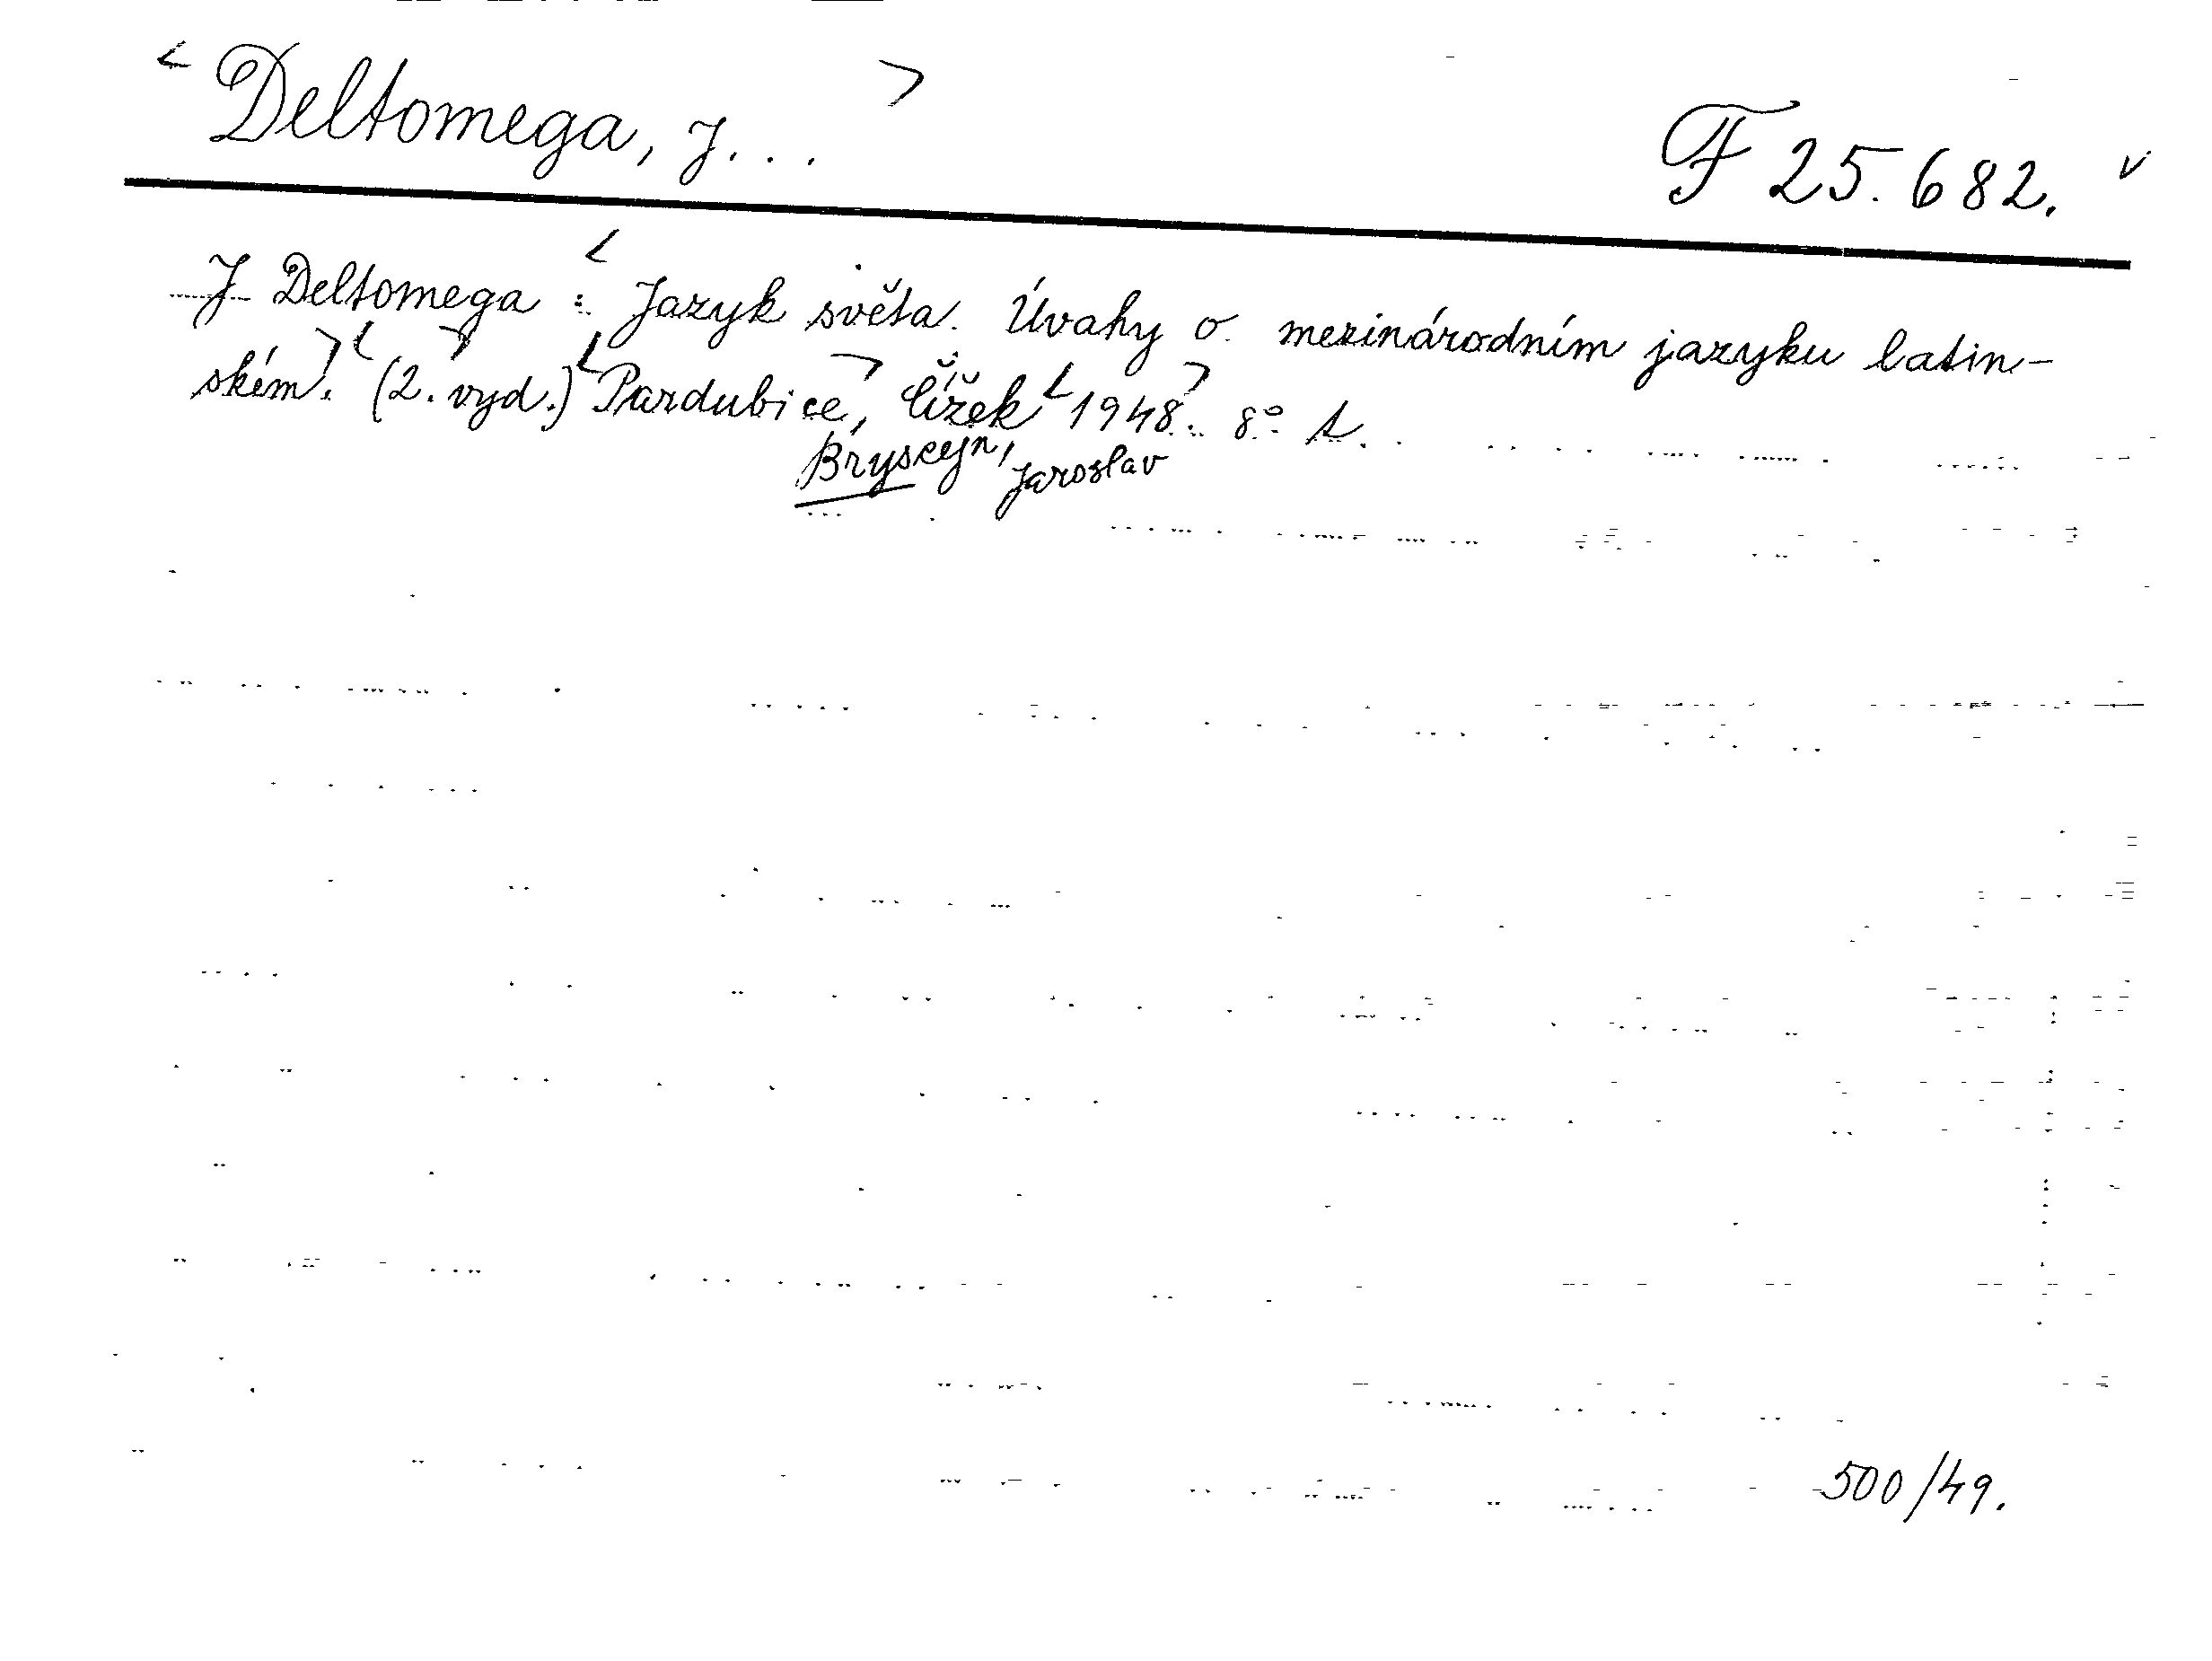 Deltomega, J...
F 25.682.
J Deltomega : Jazyk světa. Úvahy o mezinárodním jazyku latin-
ském. (2. vyd.) Pardubice, Čížek 1948. 8°
Jaroslav
500/49.